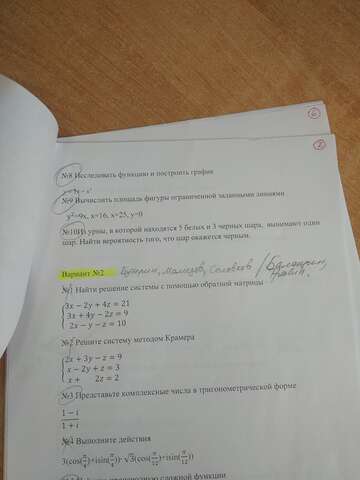 6
2
№8 Исследовать функцию и построить график
№9 Вычислить площадь фигуры ограниченной заданными линиями
y²=9x, x=16, x=25, y=0
№10 Из урны, в которой находятся 5 белых и 3 черных шара, вынимают один
шар. Найти вероятность того, что шар окажется черным.
Вариант №2
№1 Найти решение системы с помощью обратной матрицы
3x − 2y + 4z = 21
3x + 4y − 2z = 9
2x − y − z = 10
№2 Решите систему методом Крамера
2x + 3y − z = 9
x − 2y + z = 3
x + 2z = 2
№3 Представьте комплексные числа в тригонометрической форме
1 − i
1 + i
№4 Выполните действия
3(cos(π/4)+isin(π/4))· √3(cos(π/12)+isin(π/12))
сложной функции